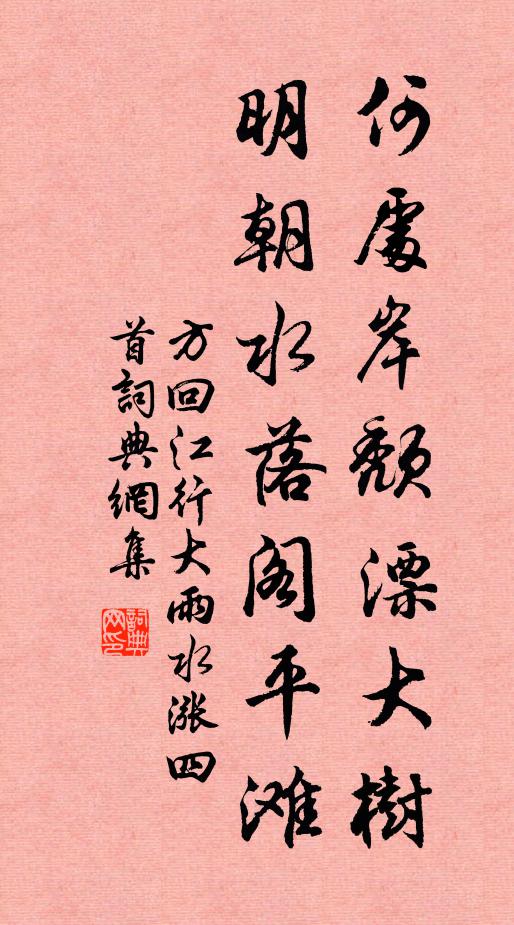 何處岸頹漂大樹
明朝水落閣平滩
方回江行大雨水漲四
首詞典網集
詞典
网印